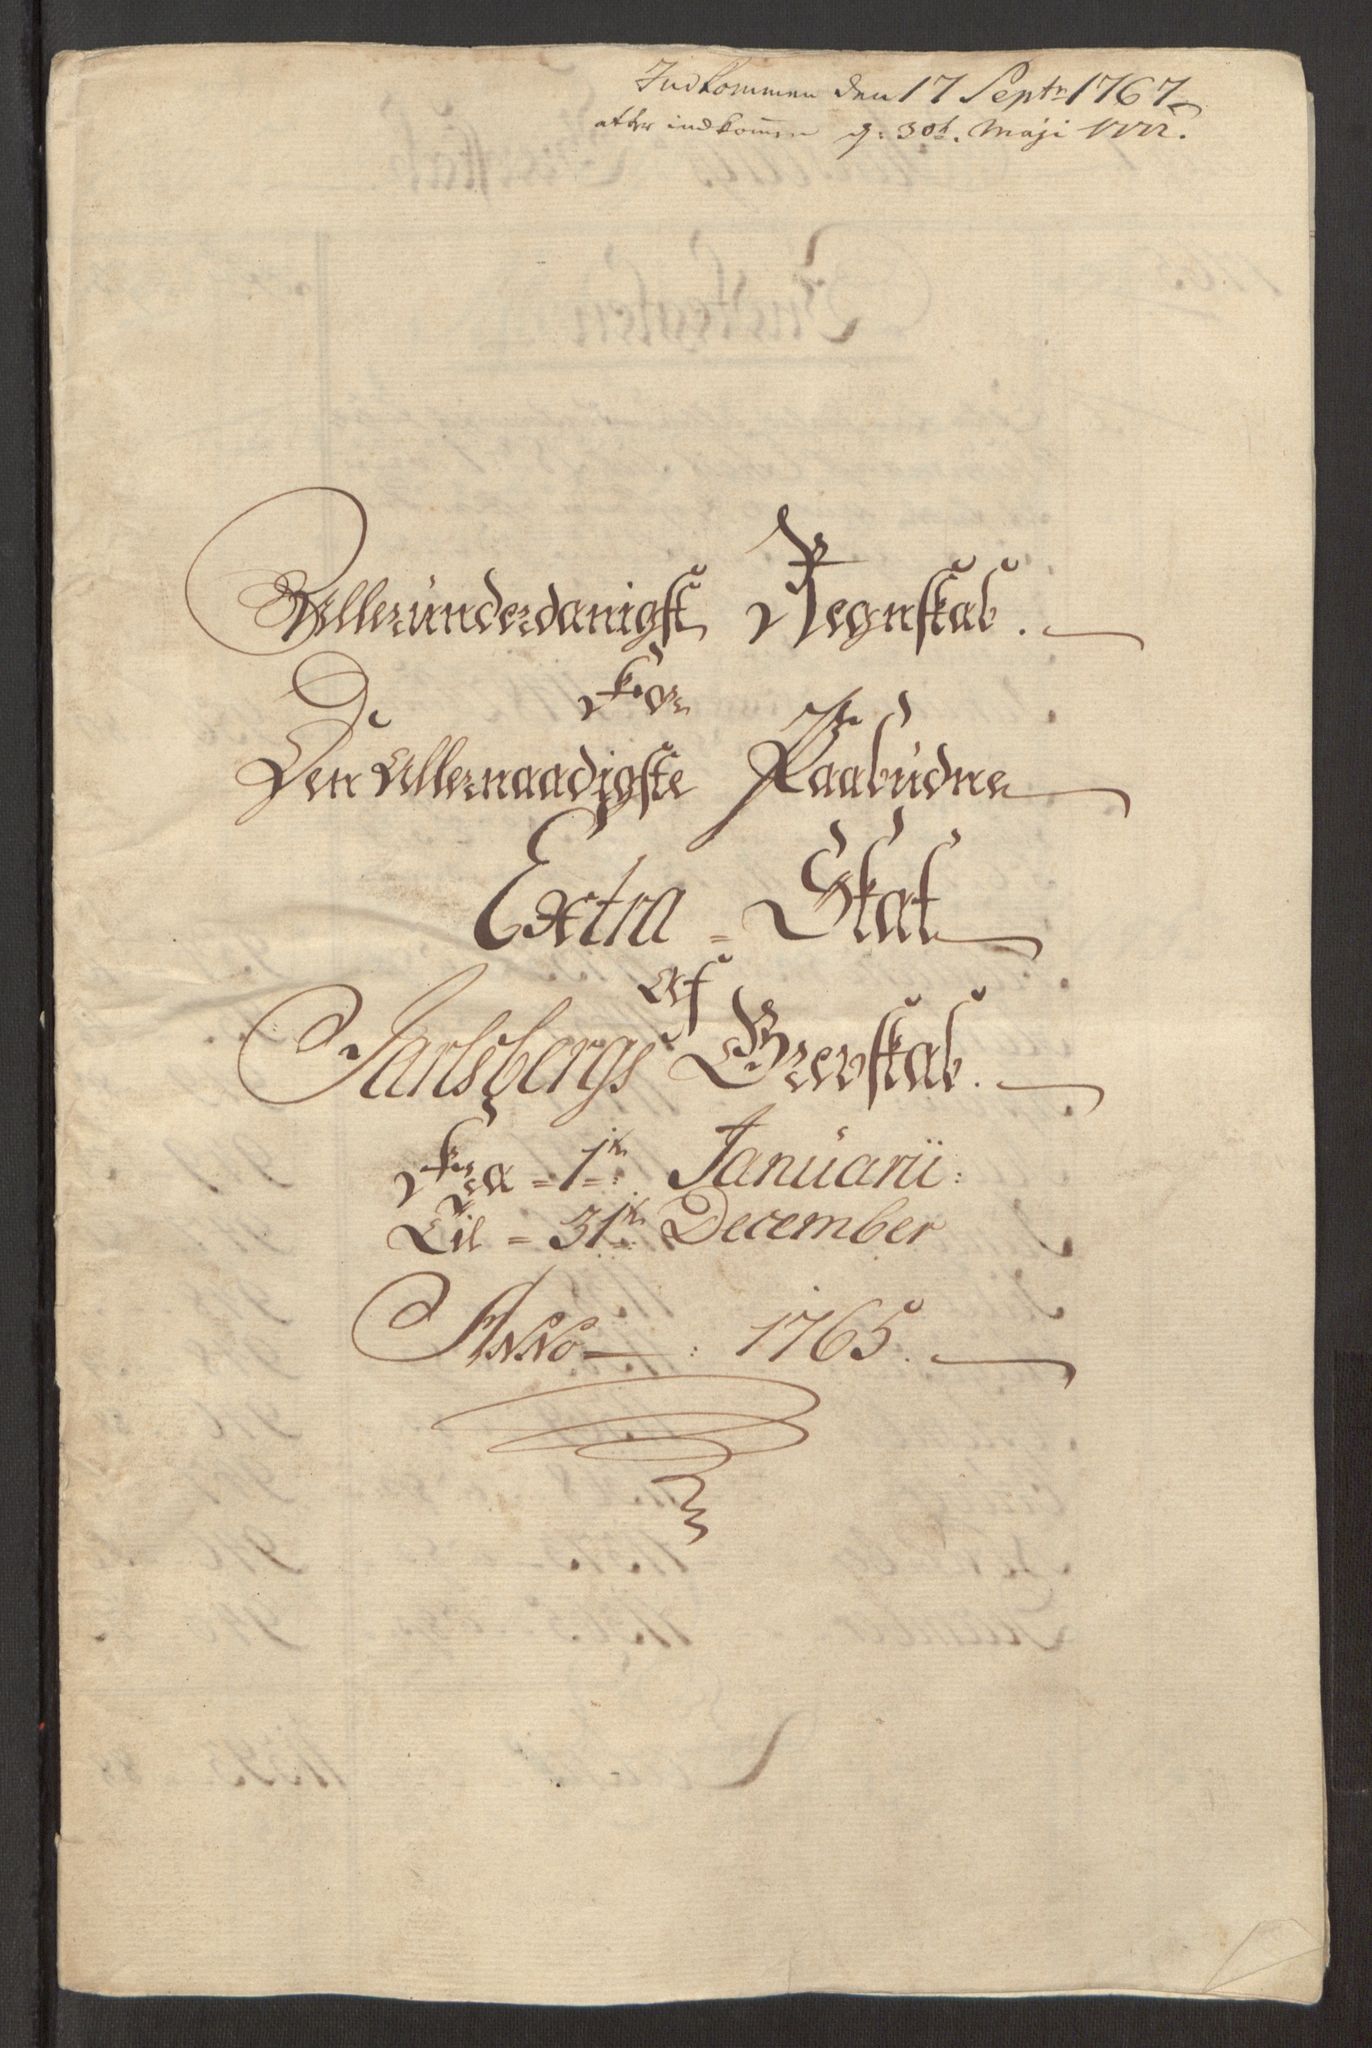 Indkommen den 17 Septr 1767
atter indkommen d: 30t. Maji 1772.
Alleründerdanigst Regnskab.
For
Den Allernaadigste Paabüdne
Extra = Skat
Af
Jarlsbergs Grevskab.
Fra = 1te Januarii:
Til = 31te December
Anno : 1765.